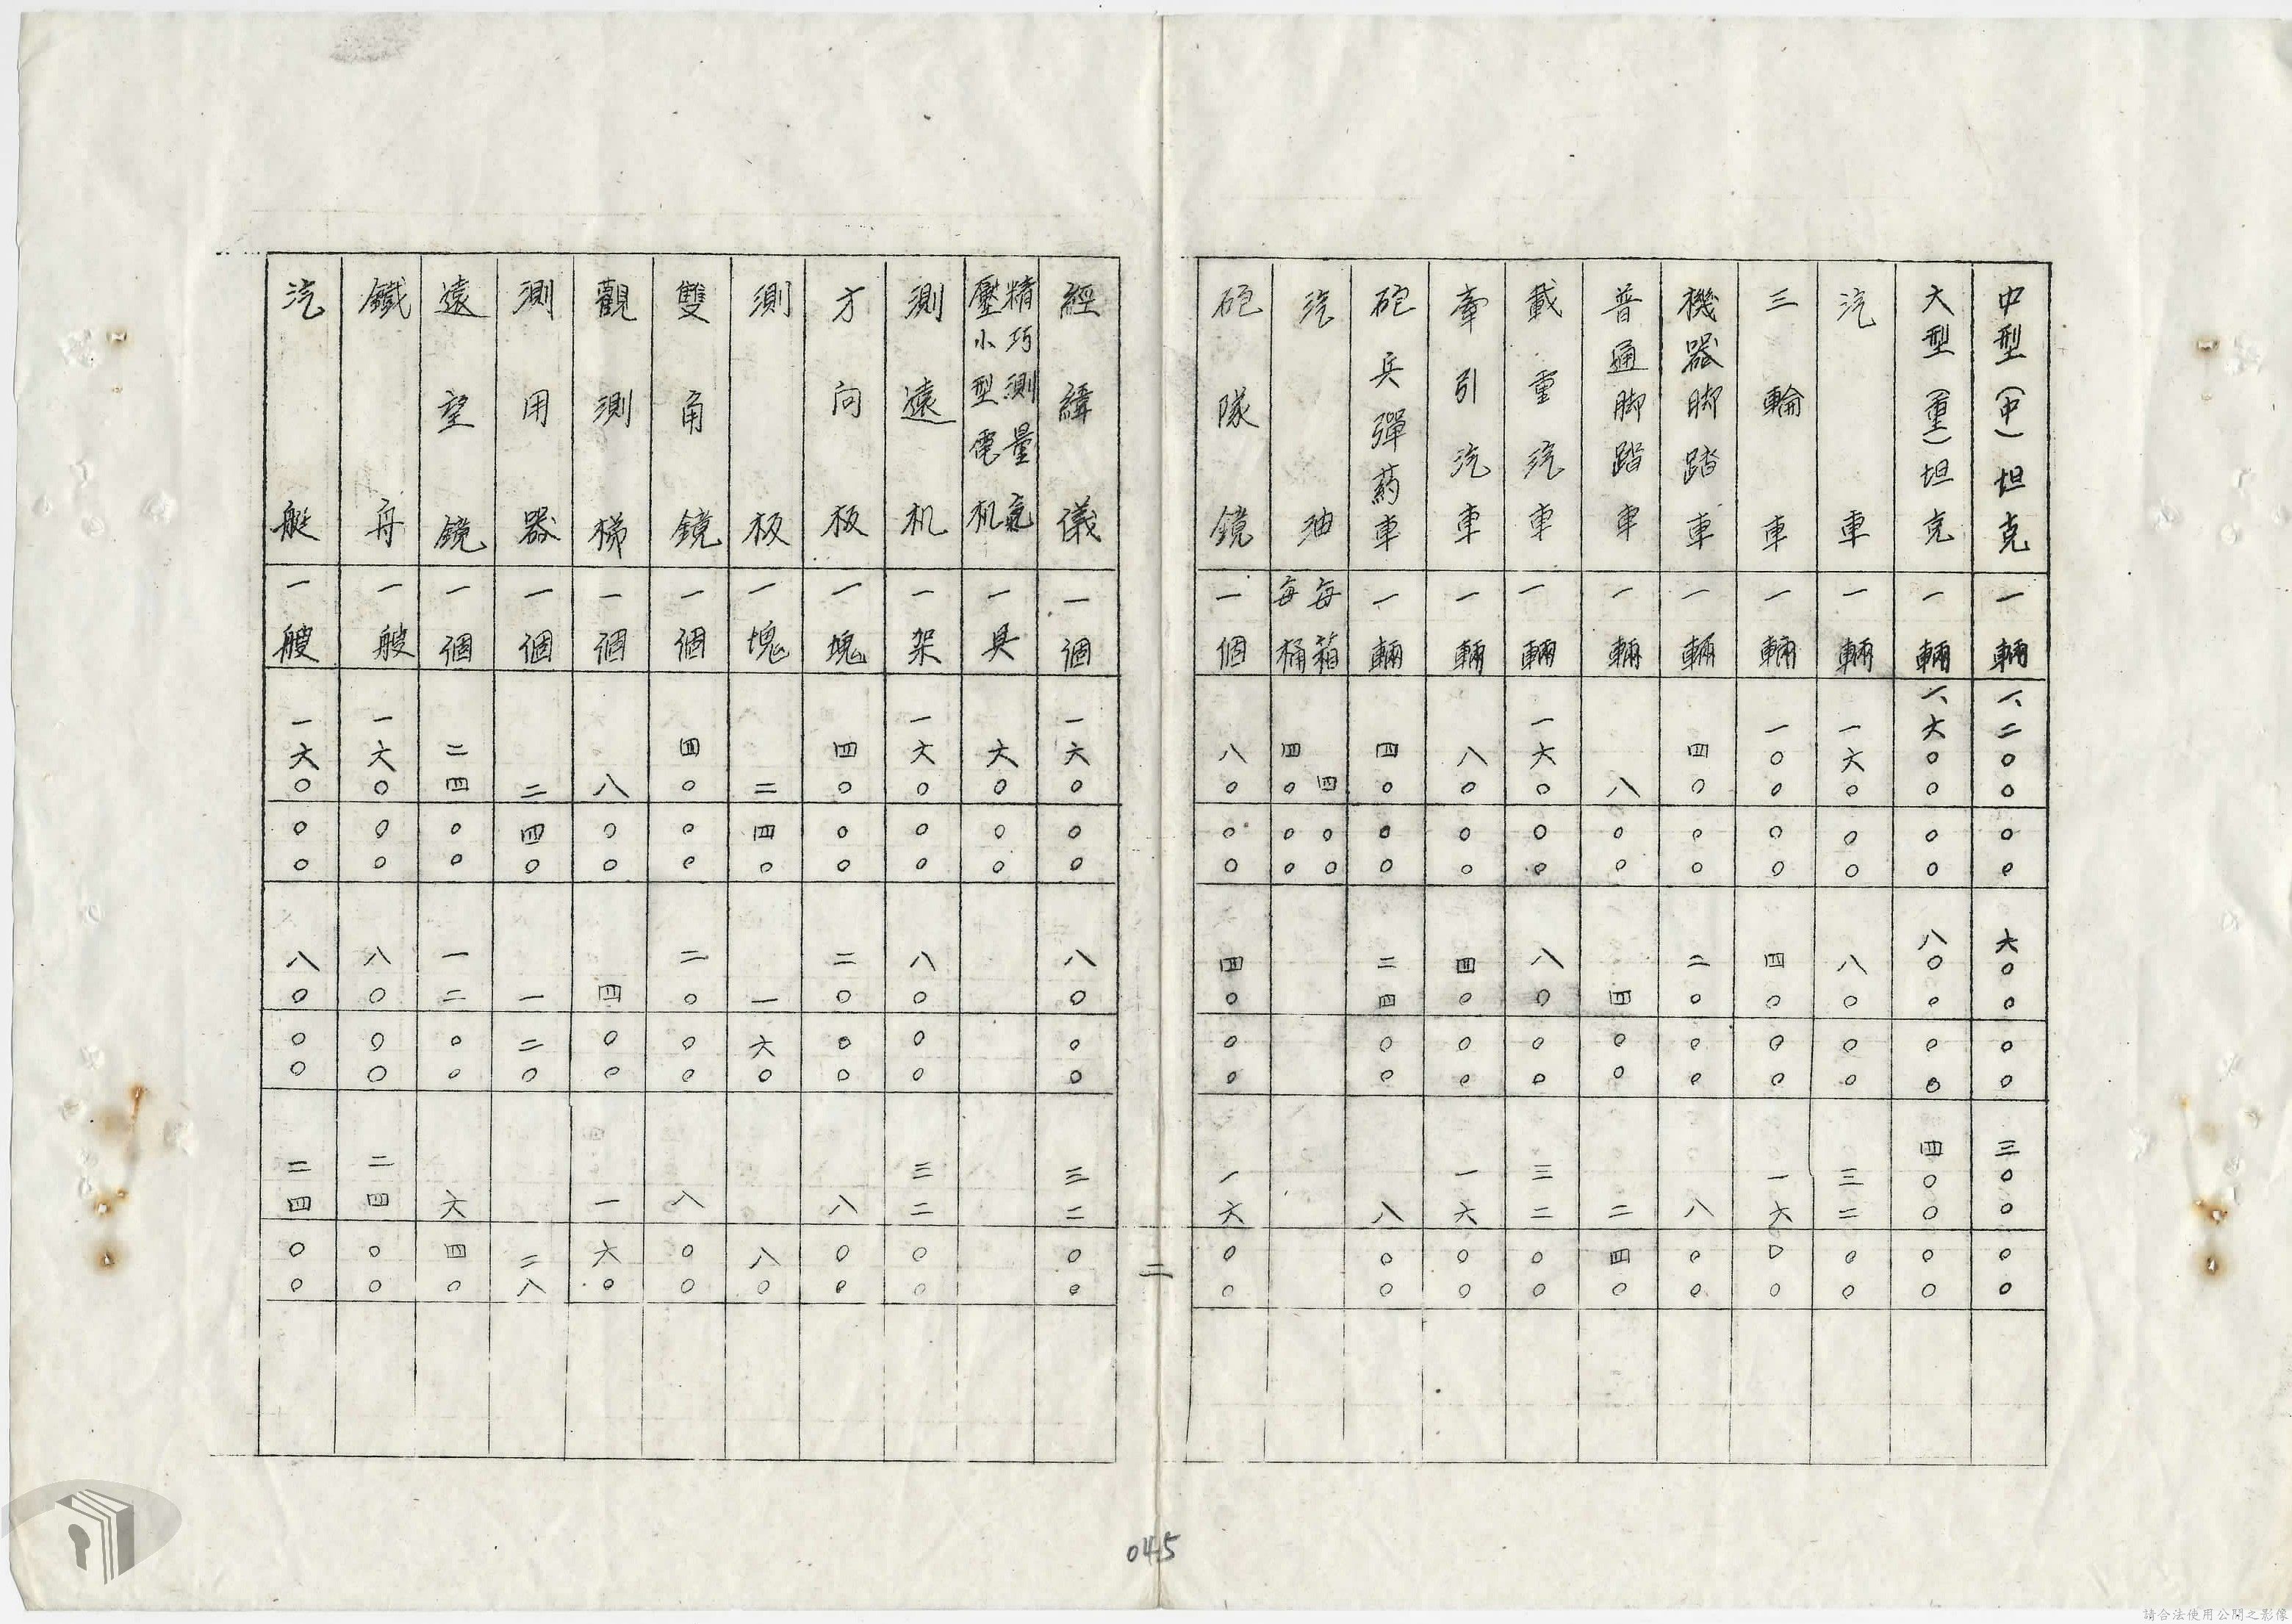 中型(中)坦克 一輛 一、二〇〇 〇〇 六〇〇 〇〇 三〇〇 〇〇
大型(重)坦克 一輛 一、六〇〇 〇〇 八〇〇 〇〇 四〇〇 〇〇
汽車 一輛 一六〇 〇〇 八〇 〇〇 三二 〇〇
三輪車 一輛 一〇〇 〇〇 四〇 〇〇 一六 〇〇
機器脚踏車 一輛 四〇 〇〇 二〇 〇〇 八 〇〇
普通脚踏車 一輛 八 〇〇 四 〇〇 二 四〇
載重汽車 一輛 一六〇 〇〇 八〇 〇〇 三二 〇〇
牽引汽車 一輛 八〇 〇〇 四〇 〇〇 一六 〇〇
砲兵彈葯車 一輛 四〇 〇〇 二四 〇〇 八 〇〇
汽油 每箱 四 〇〇
每桶 四〇 〇〇
砲隊鏡 一個 八〇 〇〇 四〇 〇〇 一六 〇〇
二
經緯儀 一個 一六〇 〇〇 八〇 〇〇 三二 〇〇
精巧測量氣
壓小型電机 一具 六〇 〇〇
測遠机 一架 一六〇 〇〇 八〇 〇〇 三二 〇〇
方向板 一塊 四〇 〇〇 二〇 〇〇 八 〇〇
測板 一塊 二 四〇 一 六〇 八〇
雙角鏡 一個 四〇 〇〇 二〇 〇〇 八 〇〇
觀測梯 一個 八 〇〇 四 〇〇 一 六〇
測用器 一個 二 四〇 一 二〇 二八
遠望鏡 一個 二四 〇〇 一二 〇〇 六 四〇
鐵舟 一艘 一六〇 〇〇 八〇 〇〇 二四 〇〇
汽艇 一艘 一六〇 〇〇 八〇 〇〇 二四 〇〇
045
請合法使用公開之影像